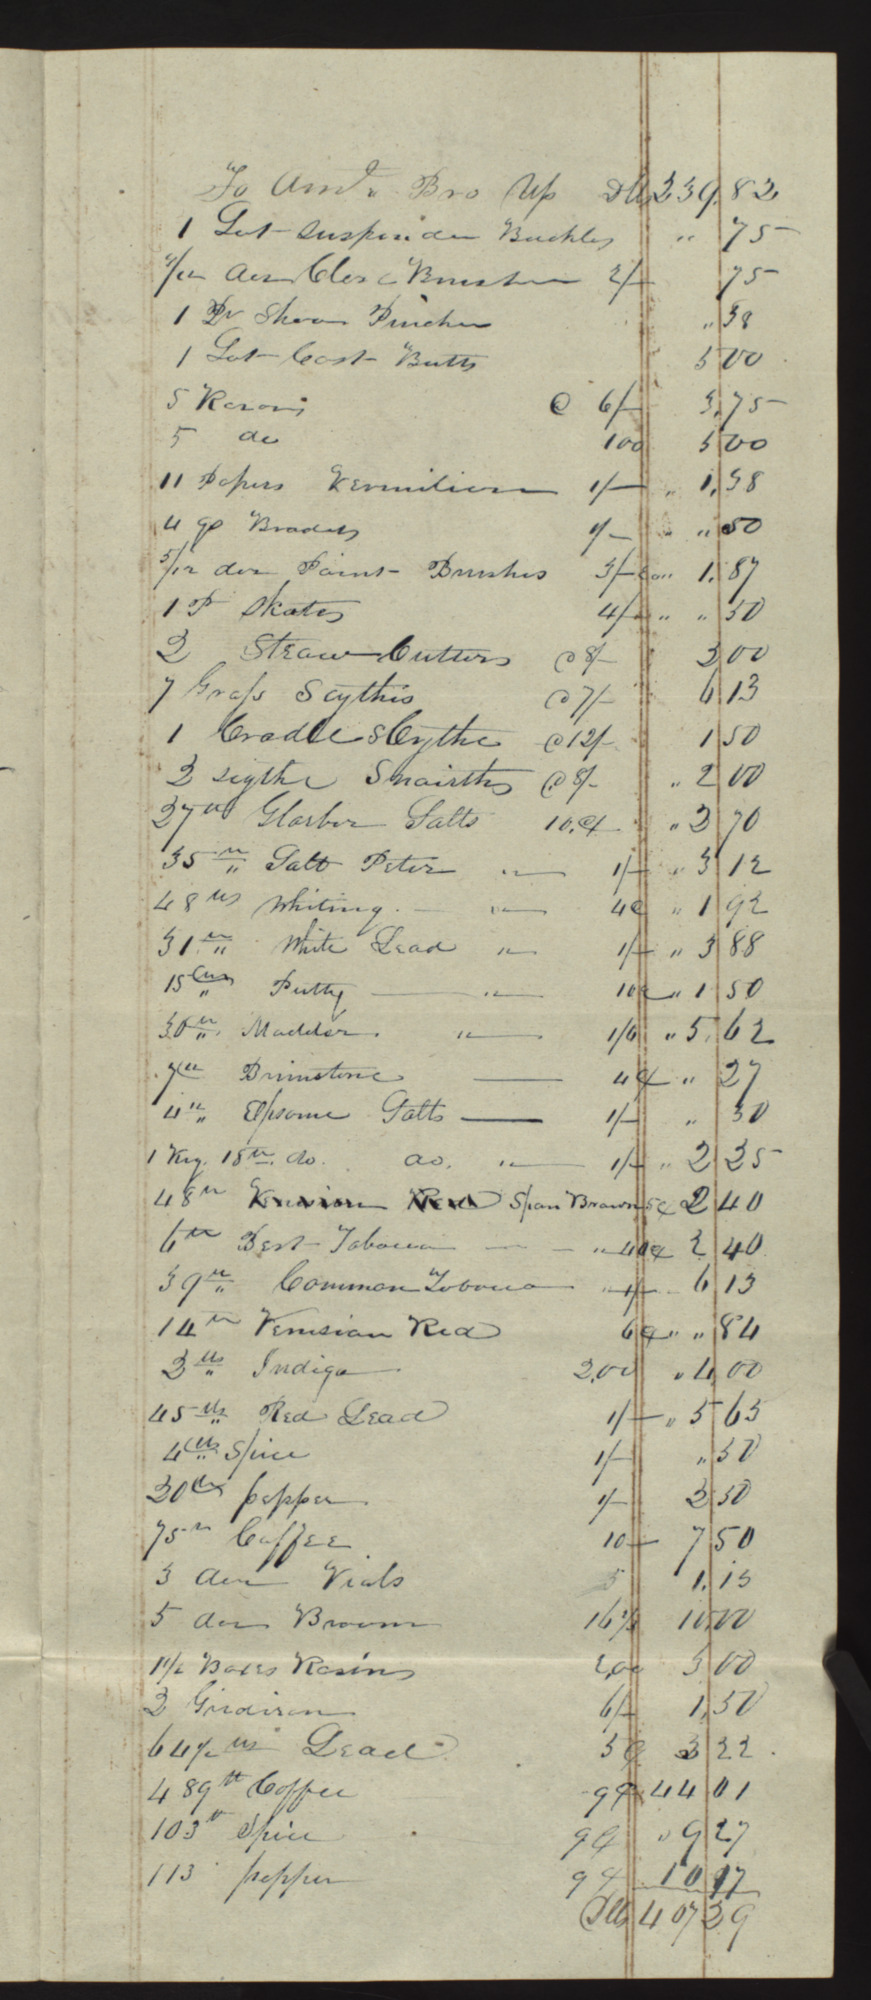 To Amt. Bro Up Dlls 239,82
1 Lot Suspender Buckles " 75
4/12 doz Clos Brushes 2/ 75
1 Pr Shoe Pincher " 38
1 Lot Cast Butts 5 00
5 Razors @ 6/ 3,75
5 do 100 5 00
11 Papers Vermilion 1/ " 1,38
4 Bradds 1/ " 50
5/12 doz Paint Brushes 3/ " 1.87
1 P Skates 4/ " " 50
2 Straw Cutters @ 8/ 2 00
7 Grass Scythis @ 7/ 6 13
1 Cradle sCythe @ 12/ 1 50
2 siythe Snairths @ 8/ " 2 00
27 lb Glarber Salts 10.c " 2 70
35 lb " Salt Peter " 1/ " 3 12
48 lbs Whiting. " 4c " 1 92
31 lb " White Lead " 1/ " 3 88
15 lbs Putty " 10c " 1 50
30 lb ". Madder. " 1/6 " 5,62
7 lb Brimstone 4c " 27
4 lb " Epsome Salts 1/ " 50
1 Keg. 18 lb. do. do. " 1/ " 2 25
48 lb Venisian Red Span Brown 5c 2 40
6 lb Best Tobacco " 40c 2 40
39 lb " Common Tobacco " 1/ 6 13
14 lb Venisian Red 6c " " 84
2 lbs " Indigo 2,00 " 4 00
45 lbs " Red Lead 1/ " 5 63
4 lbs " Spice 1/ " 50
20 lbs pepper 1/ 2 50
75 lb Coffee 10 7 50
3 doz Vials 3/ 1.13
5 doz Broom 16/ 10,00
1 1/2 Boxes Rasins 2,00 3 00
2 Gridiron 6/ 1,50
64 1/2 lbs Lead 5c 3 22
489 lb Coffee 9c 44 01
103 lb Spice 9c " 9 27
113 pepper 9c 10 17
Dlls 407 29